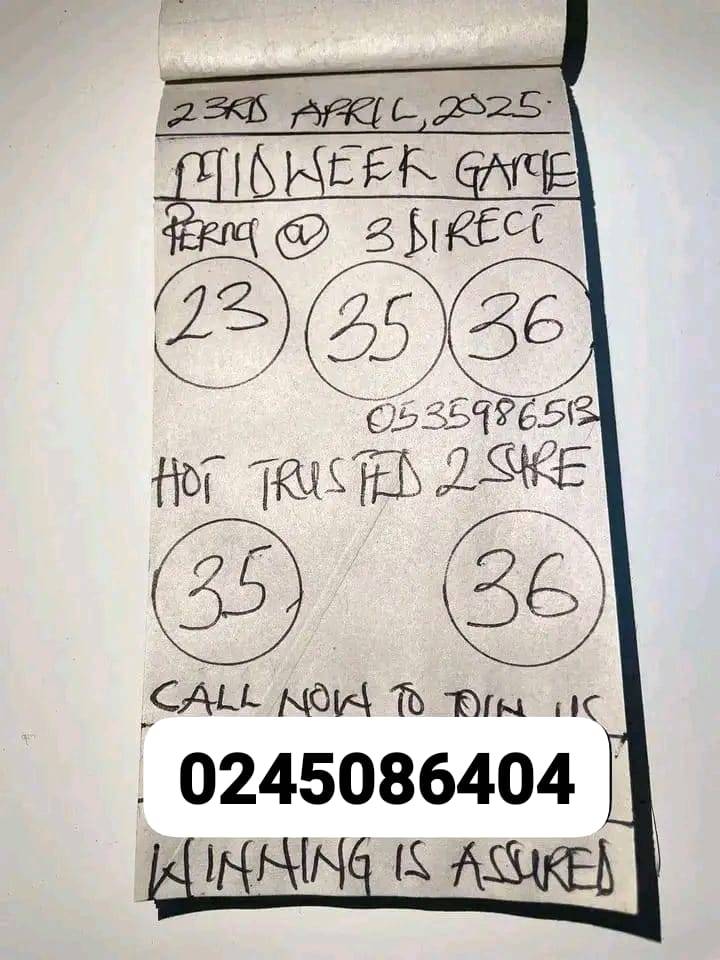 23RD APRIL, 2025.
MIDWEEK GAME
PERM @ 3 DIRECT
23 35 36
0535986513
HOT TRUSTED 2 SURE
35 36
CALL NOW TO JOIN US
0245086404
WINNING IS ASSURED